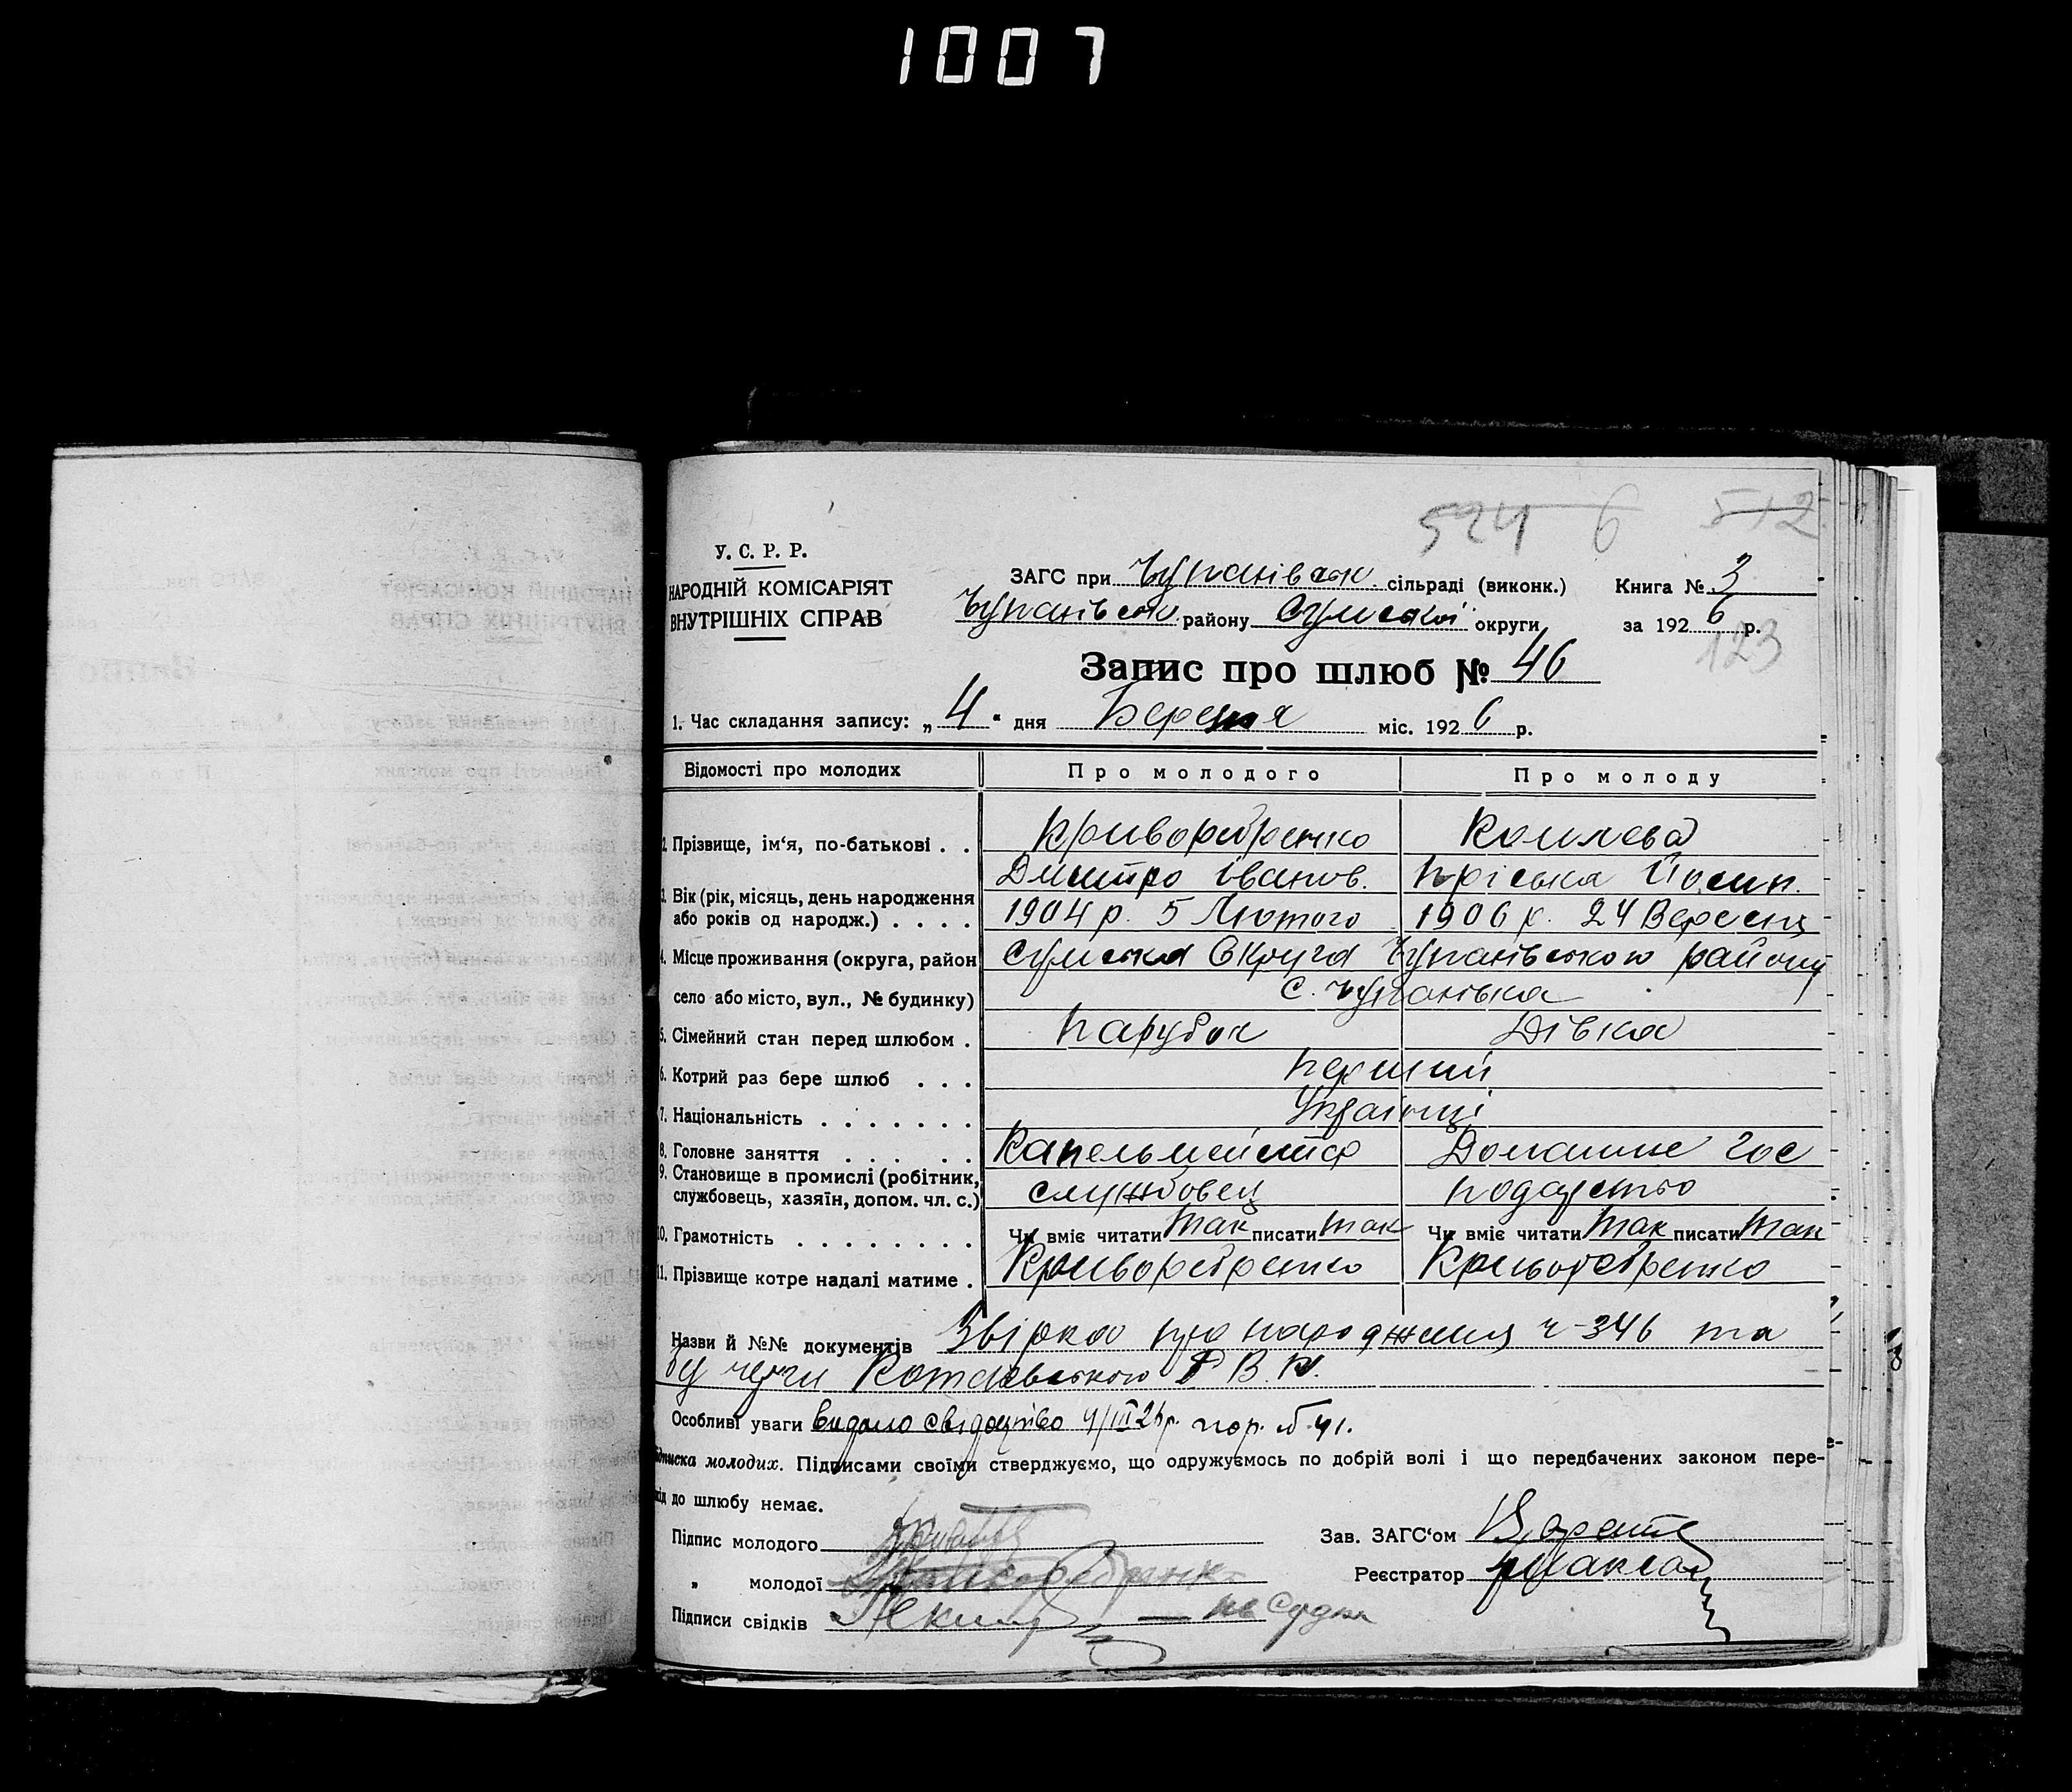 1007
524 6 512
У. С. Р. Р.
НАРОДНІЙ КОМІСАРІЯТ
ВНУТРІШНІХ СПРАВ
ЗАГС при Чупахівськ. сільраді (виконк.) Книга № 3
Чупахівськ. району Сумської округи за 1926 р.
123
Запис про шлюб № 46
1. Час складання запису: „4“ дня Березня міс. 1926 р.
Відомості про молодих Про молодого Про молоду
2. Прізвище, ім‘я, по-батькові . . Криворебренко
Дмитро Іванов. Пріська Йосип.
3. Вік (рік, місяць, день народження
або років од народж.) . . . . 1904 р. 5 Лютого 1906 р. 24 Вересня
4. Місце проживання (округа, район Сумська Округа Чупахівського району
село або місто, вул., № будинку) с. Чупахівка
5. Сімейний стан перед шлюбом . Парубок Дівка
6. Котрий раз бере шлюб . . . Перший
7. Національність . . . . . . . Українці
8. Головне заняття . . . . . Капельмейстер Домашнє гос
9. Становище в промислі (робітник,
службовець, хазяїн, допом. чл. с.) службовец подарство
10. Грамотність . . . . . . . . Чи вміє читати так писати так Чи вміє читати так писати так
11. Прізвище котре надалі матиме . Криворебренко Криворебренко
Назви й №№ документів про народження ч-346 та
Р. В. К.
Особливі уваги видано свідоцтво 4/III 26 р.
Підписка молодих. Підписами своїми стверджуємо, що одружуємось по добрій волі і що передбачених законом пере-
шкід до шлюбу немає.
Підпис молодого Зав. ЗАГС‘ом
„ молодої Реєстратор
Підписи свідків